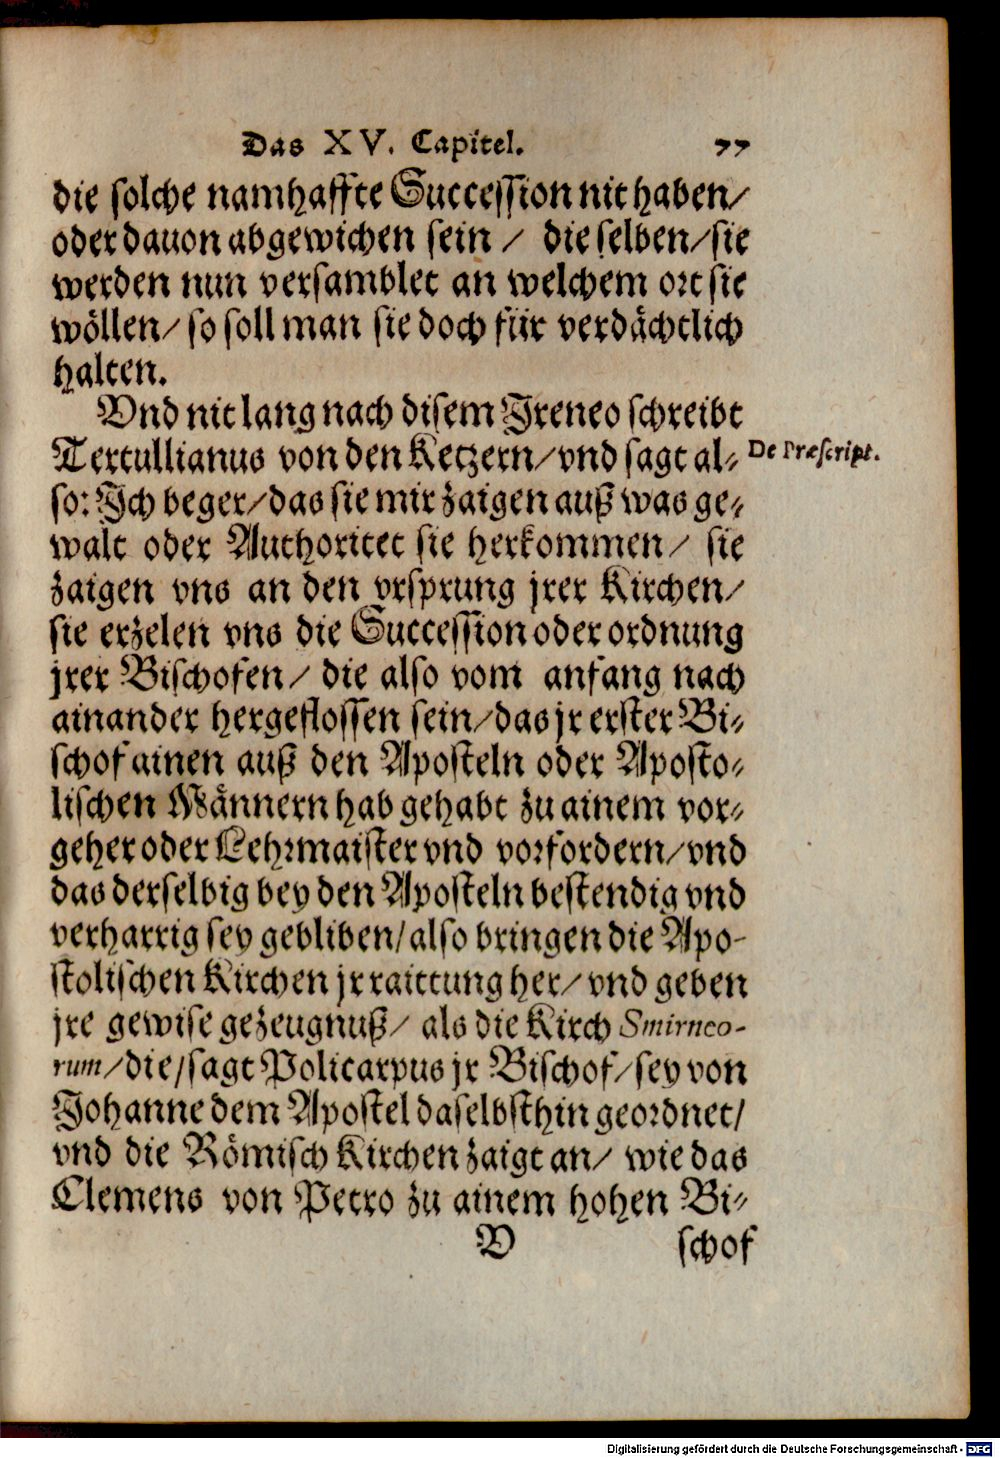 Das XV. Capitel. 77
die solche namhaffte Succession nit haben/
oder dauon abgewichen sein / die selben/sie
werden nun versamblet an welchem ort sie
wöllen/ so soll man sie doch für verdächtlich
halten.
Vnd nit lang nach disem Ireneo schreibt
Tertullianus von den Ketzern/vnd sagt al⸗
so: Ich beger/das sie mir zaigen auß was ge⸗
walt oder Authoritet sie herkommen/ sie
zaigen vns an den vrsprung jrer Kirchen/
sie erzelen vns die Succession oder ordnung
jrer Bischofen/ die also vom anfang nach
ainander hergeflossen sein/das jr erster Bi⸗
schof ainen auß den Aposteln oder Aposto⸗
lischen Männern hab gehabt zu ainem vor⸗
geher oder Lehrmaister vnd vorfordern/vnd
das derselbig bey den Aposteln bestendig vnd
verharrig sey gebliben/also bringen die Apo-
stolischen Kirchen jr raittung her/vnd geben
jre gewise gezeugnuß/ als die Kirch Smirneo-
rum/die/sagt Policarpus jr Bischof/sey von
Johanne dem Apostel daselbsthin geordnet/
vnd die Römisch Kirchen zaigt an/ wie das
Clemens von Petro zu ainem hohen Bi⸗
V schof
De Præscript.
Digitalisierung gefördert durch die Deutsche Forschungsgemeinschaft - DFG